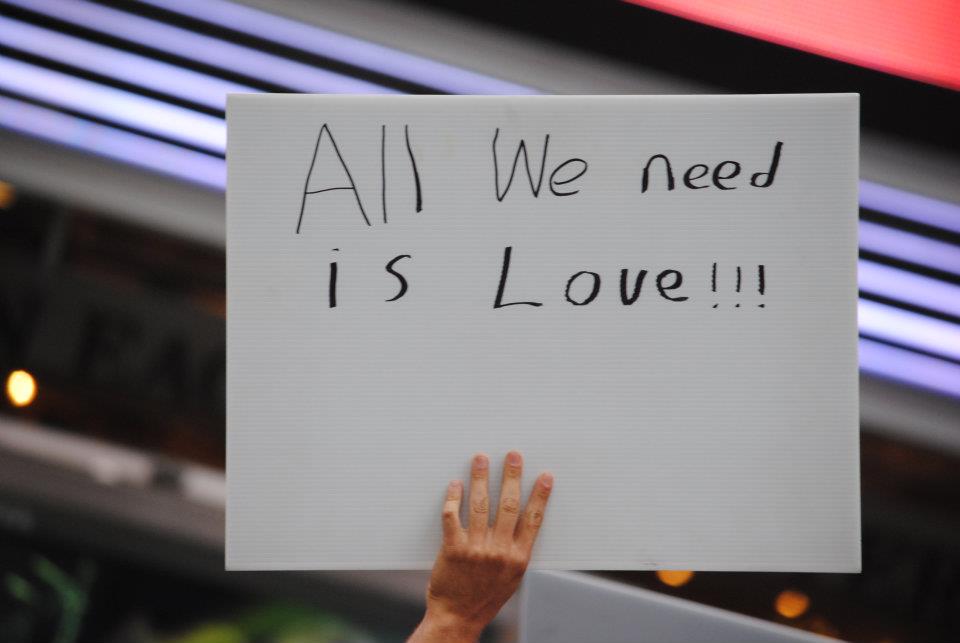 All We need
is Love!!!